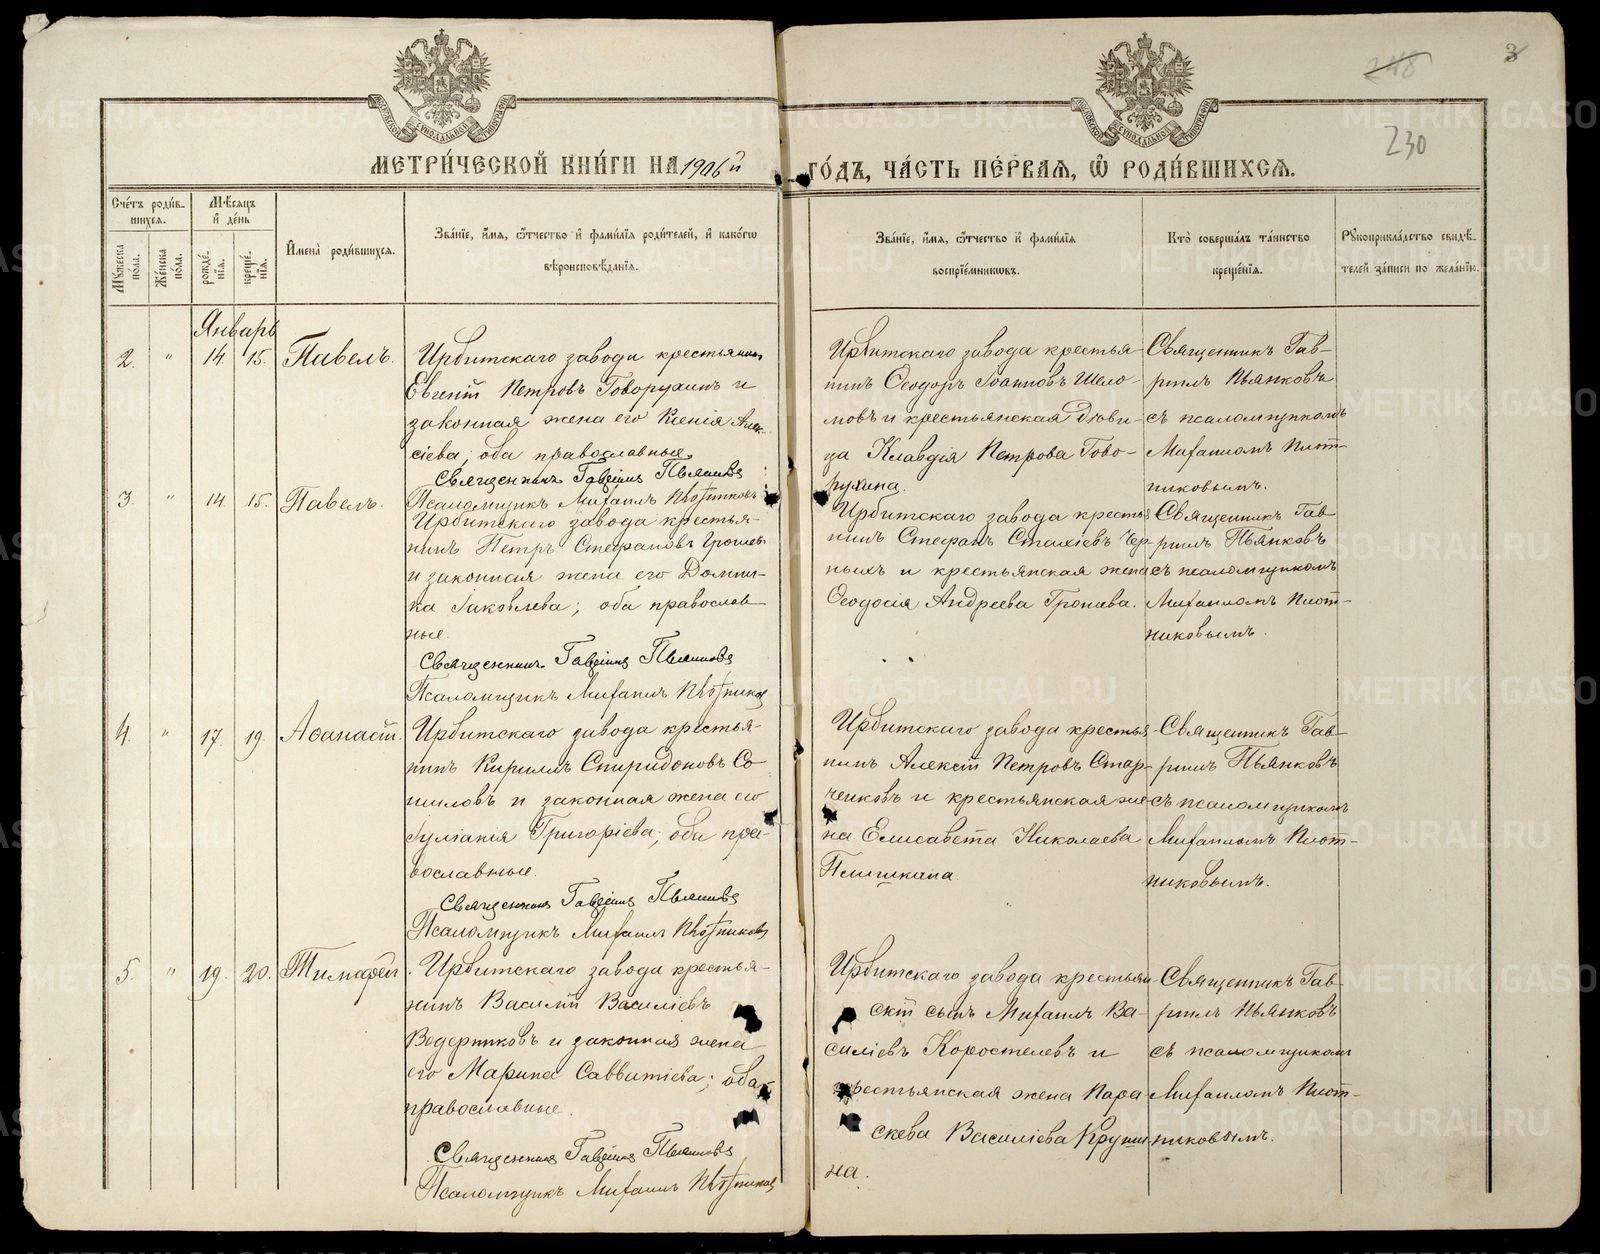 248
3
230
МЕТРИ́ЧЕСКОЙ КНИ́ГИ НА 1906й ГО́ДЪ, ЧА́СТЬ ПЕ́РВАЯ, Ѽ РОДИ́ВШИХСЯ.
Сче́тъ роди́в-
шихся.
Му́жеска пола.
Же́нска пола.
Мѣсяцъ
и де́нь
рожде́-
нїя.
креще́-
нїя.
Имена̀ роди́вшихся.
Зва́нїе, и́мя, ѻ́тчество и фами́лїя роди́телей, и како́гѡ
вѣроисповѣ́данїя.
Зва́нїе, и́мя, ѻ́тчество и фами́лїя
воспрїе́мникѡвъ.
Кто̀ соверша́лъ та́инство
креще́нїя.
Рукоприкла́дство свидѣ́-
телей за́писи по жела́нїю.
Январь
2. " 14 15. Павелъ.
Ирбитскаго завода крестьянинъ
Евгеній Петровъ Говорухинъ и
законная жена его Ксенія Алек-
сіева; оба православные.
Священникъ Гавріилъ Пьянковъ
Псаломщикъ Михаилъ Плотниковъ
Ирбитскаго завода крестья-
нинъ Ѳеодоръ Іоанновъ Шело-
мовъ и крестьянская дѣви-
ца Клавдія Петрова Гово-
рухина.
Священникъ Гав-
ріилъ Пьянковъ
съ псаломщикомъ
Михаиломъ Плот-
никовымъ.
3. " 14 15. Павелъ.
Ирбитскаго завода крестья-
нинъ Петръ Стефановъ Грошевъ
и законная жена его Домни-
ка Іаковлева; оба православ-
ные.
Священникъ Гавріилъ Пьянковъ
Псаломщикъ Михаилъ Плотниковъ
Ирбитскаго завода крестья-
нинъ Стефанъ Стахіевъ Чер-
ныхъ и крестьянская жена
Ѳеодосія Андреева Грошева.
Священникъ Гав-
ріилъ Пьянковъ
съ псаломщикомъ
Михаиломъ Плот-
никовымъ.
4. " 17 19. Аѳанасій.
Ирбитскаго завода крестья-
нинъ Кириллъ Спиридоновъ Со-
шиловъ и законная жена его
Іуліанія Григоріева; оба пра-
вославные.
Священникъ Гавріилъ Пьянковъ
Псаломщикъ Михаилъ Плотниковъ
Ирбитскаго завода крестья-
нинъ Алексій Петровъ Стар-
ченковъ и крестьянская же-
на Елисавета Николаева
Священникъ Гав-
ріилъ Пьянковъ
съ псаломщикомъ
Михаиломъ Плот-
никовымъ.
5. " 19. 20. Тимофей.
Ирбитскаго завода крестья-
нинъ Василій Василіевъ
Ведерниковъ и законная жена
его Марина Савватіева; оба
православные.
Священникъ Гавріилъ Пьянковъ
Псаломщикъ Михаилъ Плотниковъ
Ирбитскаго завода крестьян-
скій сынъ Михаилъ Ва-
силіевъ Коростелевъ и
крестьянская жена Пара-
скева Василіева Крупи-
на.
Священникъ Гав-
ріилъ Пьянковъ
съ псаломщикомъ
Михаиломъ Плот-
никовымъ.
METRIKI.GASO-URAL.RU